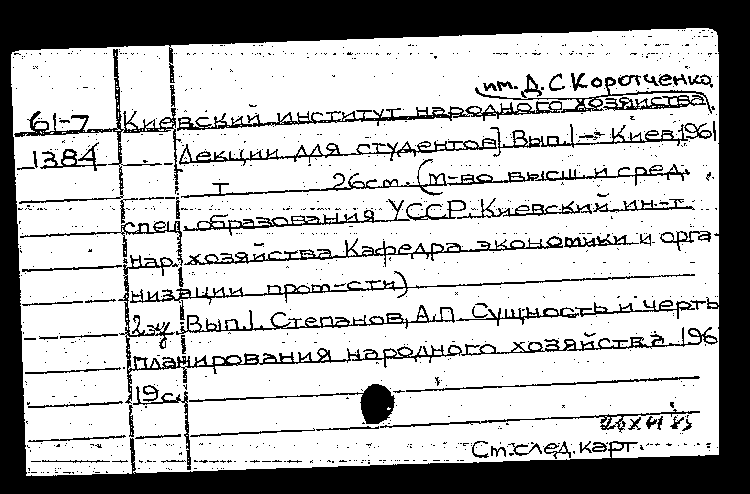 им. Д. С Коротченко
61-7 Киевский институт народного хозяйства.
1384 [Лекции для студентов]. Вып. 1 → Киев 1961
т 26см. (М-во высш и сред.
спец. образования УССР. Киевский ин-т
нар. хозяйства Кафедра экономики и орга-
низации пром-сти)
2эк Вып. 1. Степанов, А.П. Сущность и черты
планирования народного хозяйства 196
19 с.
См. след. карт.